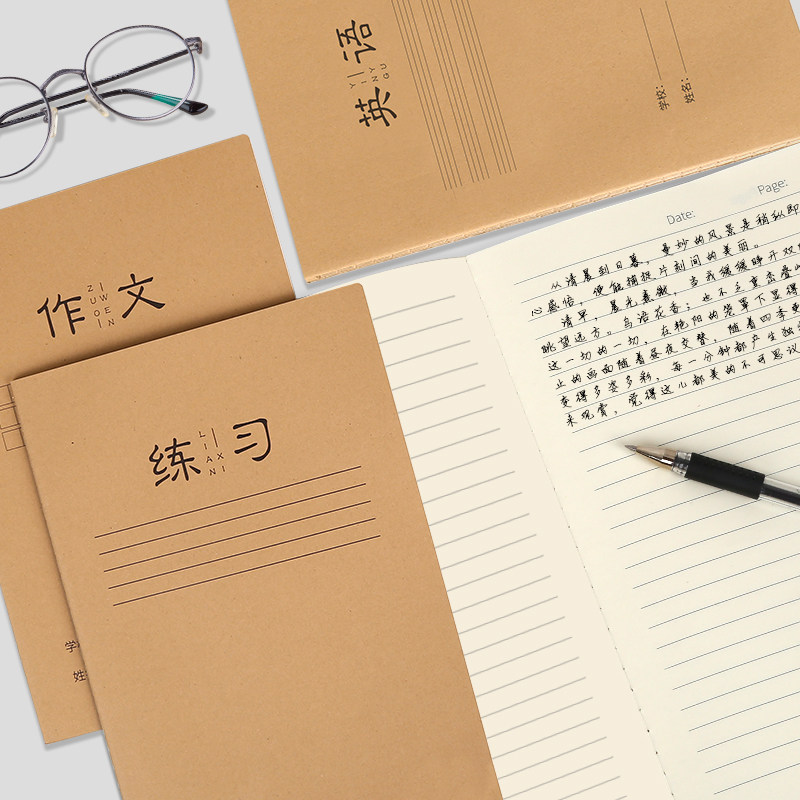 英语
YINGYU
学校:
姓名:
作文
ZUOWEN
练习
LIANXI
学
姓
Date:
Page:
从清晨到日暮,曼妙的风景是稍纵即
心感悟,便能捕捉片刻间的美丽。
清早,晨光熹微,当我缓缓睁开双
眺望远方。鸟语花香;也不乏重峦叠
这一切的一切,在艳阳的笼罩下显得
止的画面随着昼夜交替,随着四季更
变得多姿多彩,每一分钟都产生独
来观赏,觉得这儿都美的不可思议